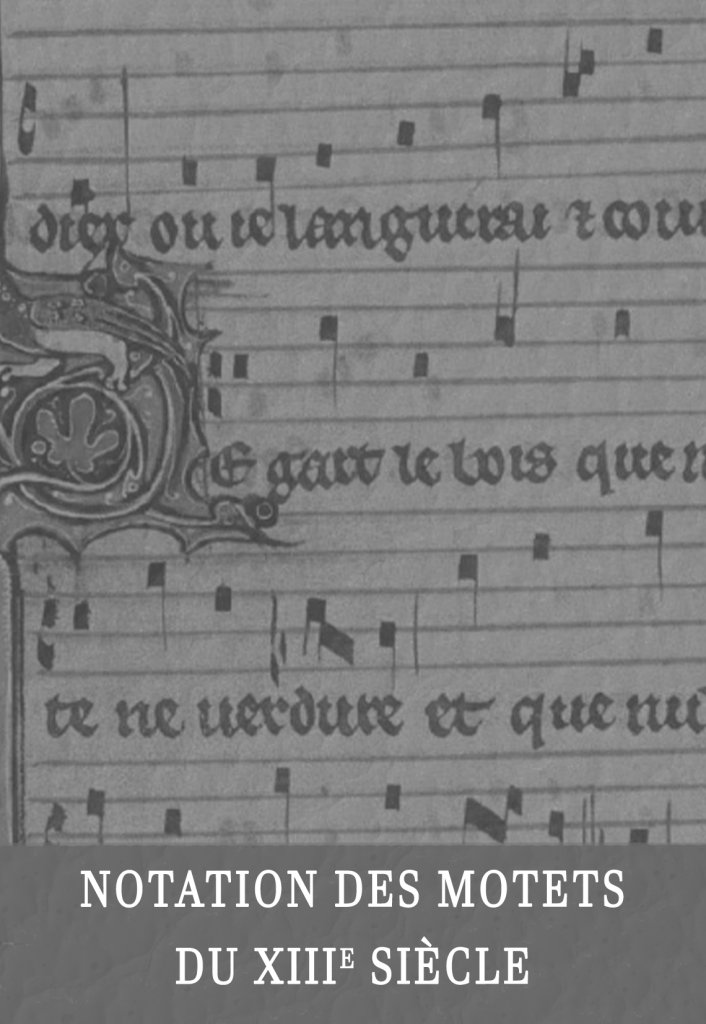 dier ou ie languirai ⁊ cou
E gart le bois que n
te ne uerdure et que nu
NOTATION DES MOTETS
DU XIIIᴱ SIÈCLE